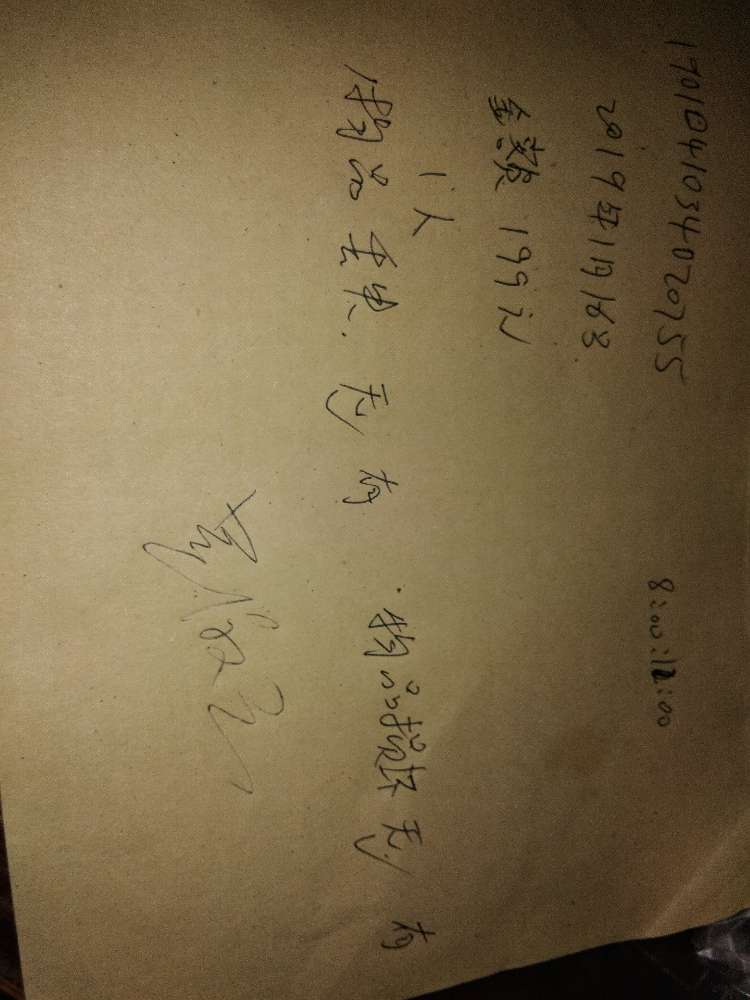 1901041034020755
2019年1月16日 8:00:12:00
金额 199元
1人
物品丢失. 无 有 物品损坏 无 有